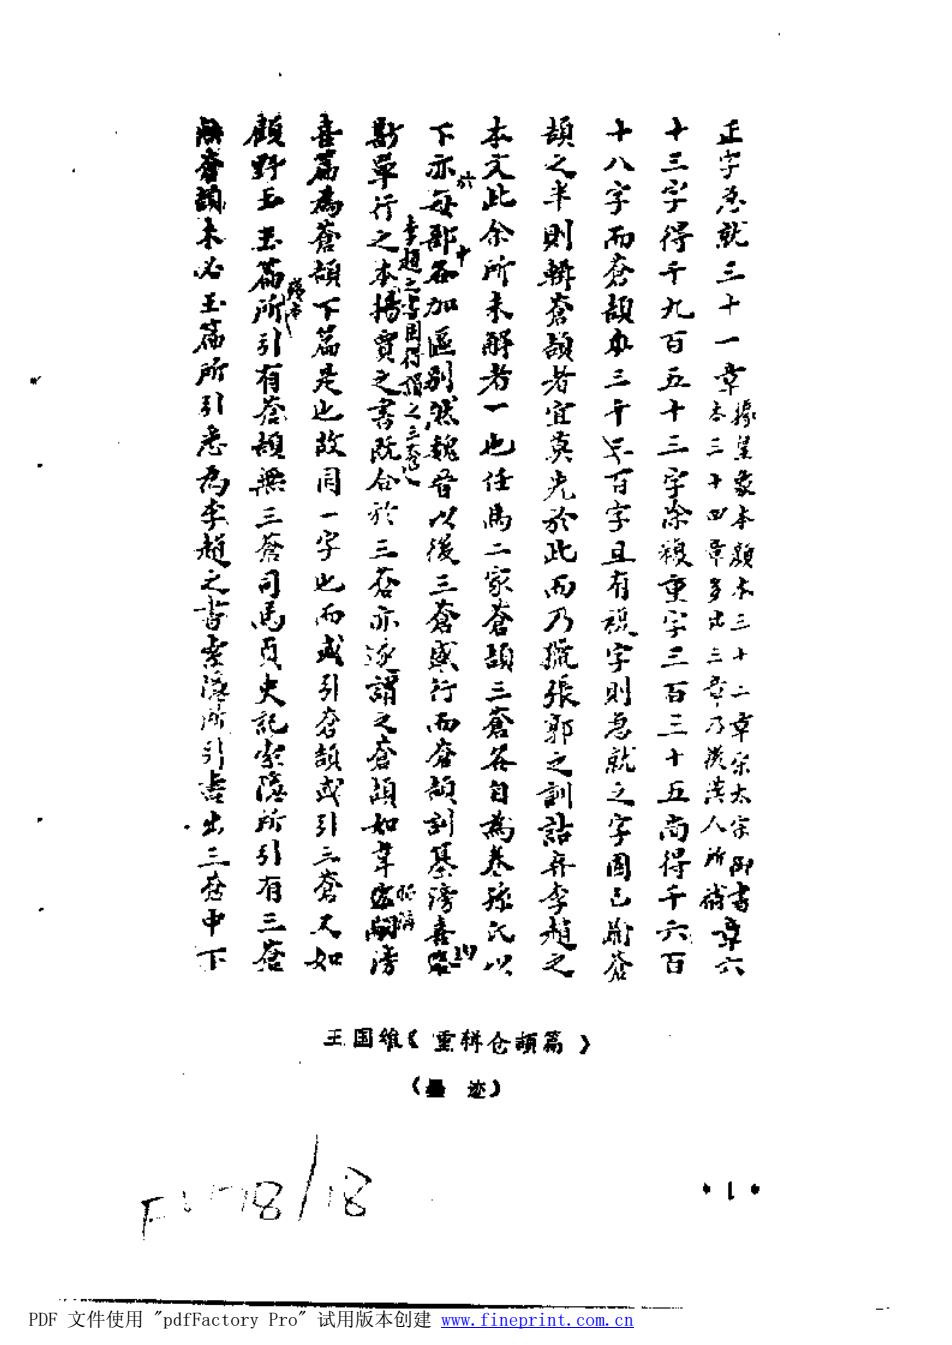 正字急就三十一章據皇象本顏本三十二章宋太宗御書本三十四章多出三章乃後漢人所補章六
十三字得千九百五十三字除複重字三百三十五尚得千六百
十八字而蒼頡本三千三百字且有複字則急就之字固已兼蒼
頡之半則輯蒼頡者宜莫先於此而乃獵張郭之訓詁弃李趙之
本文此余所未解者一也任馬二家蒼頡三蒼各自為卷孫氏以
下亦每部各加區別然魏晉以後三蒼盛行而蒼頡訓纂滂喜
單行之本揚賈之書既合於三蒼亦遂謂之蒼頡如韋滂
喜篇為蒼頡下篇是也故同一字也而或引蒼頡或引三蒼又如
顧野王玉篇所引有蒼頡無三蒼司馬貞史記索隱所引有三蒼
無蒼頡未必玉篇所引悉為李趙之書索隱所引盡出三蒼中下
王国维《重辑仓颉篇》
(墨 迹)
18/18
·1·
PDF 文件使用 "pdfFactory Pro" 试用版本创建 www.fineprint.com.cn